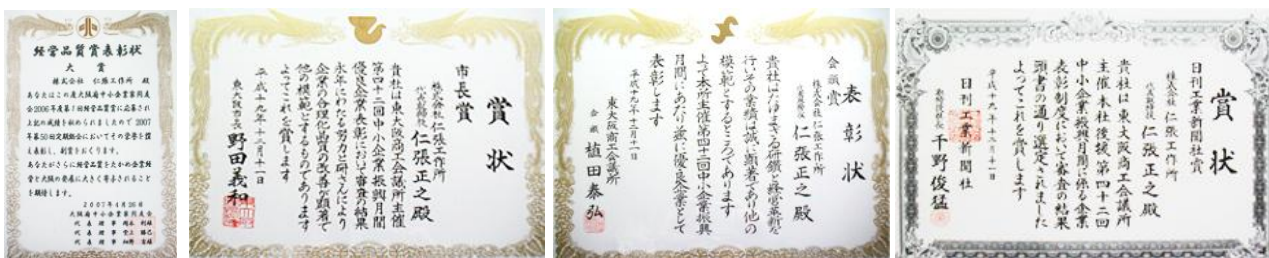 経営品質賞表彰状
大賞
株式会社 仁張工作所 殿
あなたはこの度大阪府中小企業家同友
会2006年度第7回経営品質賞に応募され
上記の成績を納められましたので2007
年第50回定期総会においてその栄誉を讃
え表彰し、副賞をおくります。
あなたがさらに経営品質をたかめ企業経
営と大阪の発展に大きく寄与されること
を期待します。
2007年4月26日
大阪府中小企業家同友会
代表理事
代表理事 堂上 勝己
代表理事
賞状
市長賞
株式会社仁張工作所
代表取締役 仁張正之殿
貴社は東大阪商工会議所主催
第四十二回中小企業振興月間
優良企業表彰において審査の結果
永年にわたる努力と研さんにより
企業の合理化品質の改善が顕著で
他の模範とするものであります
よってこれを賞します
平成十九年十二月十一日
東大阪市長 野田義和
表彰状
会頭賞
株式会社仁張工作所
代表取締役 仁張正之殿
貴社はたゆまざる研鑽と経営革新を
行いその業績は誠に顕著であり他の
模範とするところであります
よって本所主催第四十二回中小企業振興
月間にあたり茲に優良企業として
表彰します
平成十九年十二月十一日
東大阪商工会議所
会頭 植田泰弘
賞状
日刊工業新聞社賞
株式会社 仁張工作所
代表取締役 仁張正之殿
貴社は東大阪商工会議所
主催、本社後援、第四十二回
中小企業振興月間に係る企業
表彰制度において審査の結果
頭書の通り選定されました
よってこれを賞します
平成十九年十二月十一日
日刊工業新聞社
取締役社長 千野俊猛